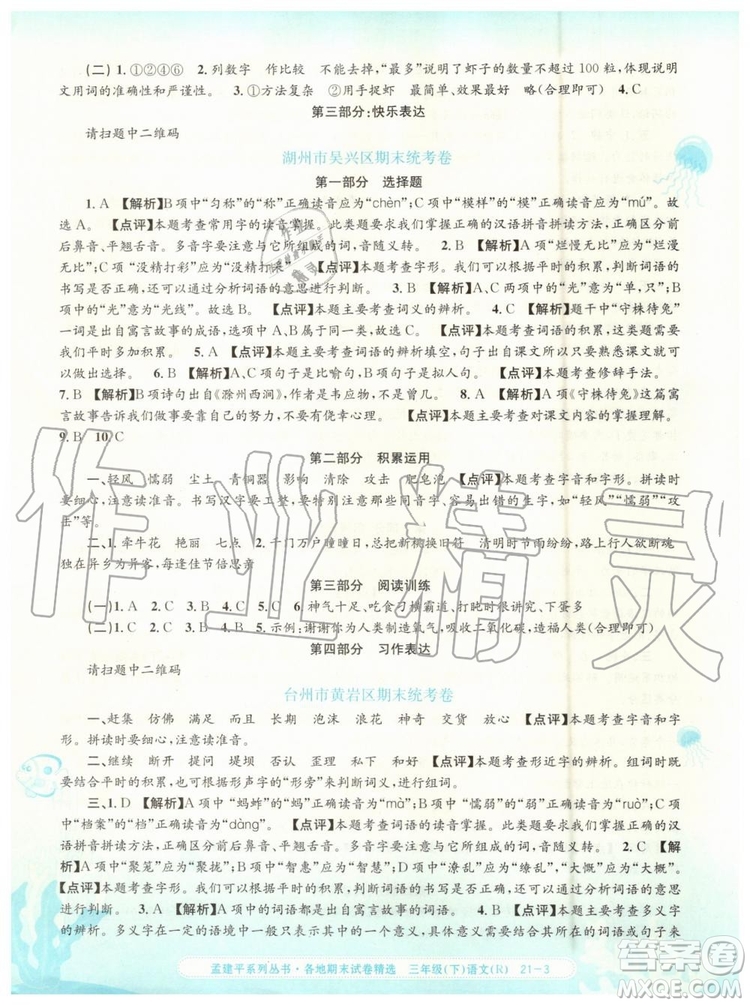 (二)1.①②④⑥ 2.列数字 作比较 不能去掉,“最多”说明了虾子的数量不超过100粒,体现了说明
文用词的准确性和严谨性。 3.①方法复杂 ②用手捉虾 最简单、效果最好 略(合理即可) 4.C
第三部分:快乐表达
请扫题中二维码
湖州市吴兴区期末统考卷
第一部分 选择题
1.A 【解析】B项中“匀称”的“称”正确读音应为“chèn”;C项中“模样”的“模”正确读音应为“mú”。故
选A。 【点评】本题考查常用字的读音掌握。此类题要求我们用正确的汉语拼音拼读方法,正确区分前
后鼻音、平翘舌音。多音字的读音要注意与它所组成的词语意义对应。 2.B 【解析】A项“烂慢无比”应为“烂漫
无比”;C项“没精打彩”应为“没精打采” 【点评】本题考查字形。此类题要求我们根据平时的积累,结合词语
的书写是否正确和词语的意思进行判断。 3.B 【解析】A、C两项中的“只”的意思为“单,只”;B
项“光”的意思为“光线”。故选B。 【点评】本题主要考查词义的辨析。 4.C 【解析】题干中“守株待兔”
一词是出自寓言故事的成语,选项中C项也是如此。 【点评】本题考查词语的积累。此类题要求我们
在平时多加积累。 5.A 【点评】本题主要考查词语的辨析填空,句子出自课文,只要熟悉课文就可以
做出选择。 6.C 【解析】A、B两个句子是比喻句,C句子是拟人句。 【点评】本题主要考查修辞手法。
7.B 【解析】B项诗句出自《滁州西涧》,作者是韦应物,不是韩愈。 8.A 【解析】《守株待兔》这篇寓
言故事告诉我们要脚踏实地做事,不要存有侥幸心理。 【点评】本题主要考查对课文内容的掌握理解。
9.B 10.C
第二部分 积累运用
一、轻风 懦弱 尘土 青铜器 影响 清除 攻击 肥皂泡 【点评】本题考查字音和字形。拼读时
要细心,注意读准音。书写汉字要工整,要特别注意那些容易出错的生字,例如“轻风”“懦弱”“攻
击”等。
二、1.牵牛花 艳丽 七点 2.千门万户曈曈日,总把新桃换旧符 清明时节雨纷纷,路上行人欲断魂
独在异乡为异客,每逢佳节倍思亲
第三部分 阅读训练
(一)1.A 2.C 3.B 4.C 5.C 6.神气十足、吃食刁横霸道、叫时很讲究、下蛋多
(二)1.C 2.A 3.B 4.B 5.示例:谢谢你为人类制造氧气,吸收二氧化碳,造福人类(合理即可)
第四部分 习作表达
请扫题中二维码
台州市黄岩区期末统考卷
一、赶集 仿佛 满足 而且 长期 泡沫 浪花 神奇 交货 放心 【点评】本题考查字音和字
形。拼读时要细心,注意读准音。
二、继续 断开 提问 堤坝 否认 歪曲 默认 墨水 【点评】本题考查形近字的辨析。组词时
要结合平时的积累,根据形声字的“形旁”来判断词义,进行组词。
三、1.D 【解析】A项中“蚂蚱”的“蚂”正确读音应为“mà”;B项中“懦弱”的“弱”正确读音应为“ruò”;C
项中“档案”的“档”正确读音应为“dàng”。 【点评】本题考查词语的读音掌握。此类题要求我们用正确
的汉语拼音拼读方法,正确区分前后鼻音、平翘舌音。多音字的读音要注意与它所组成的词语意义对应。 2.C 【解析】
A项中“聚笼”应为“聚拢”;B项中“智惠”应为“智慧”;D项中“潦乱”应为“缭乱”,“大慨”应为“大概”。
【点评】本题考查字形。此类题要求我们根据平时的积累,结合词语的书写是否正确和词语的意思
进行判断。 3.A 【解析】A项中的词语都是来自寓言故事的词语。 4.B 【点评】本题主要考查多义字的
辨析。多义字在一定的语言环境中,只有一个义项是适用的,要找出这一适用的义项,就必须联系
孟建平系列丛书·各地期末试卷精选 三年级(下)语文(R) 21-3
作业精灵